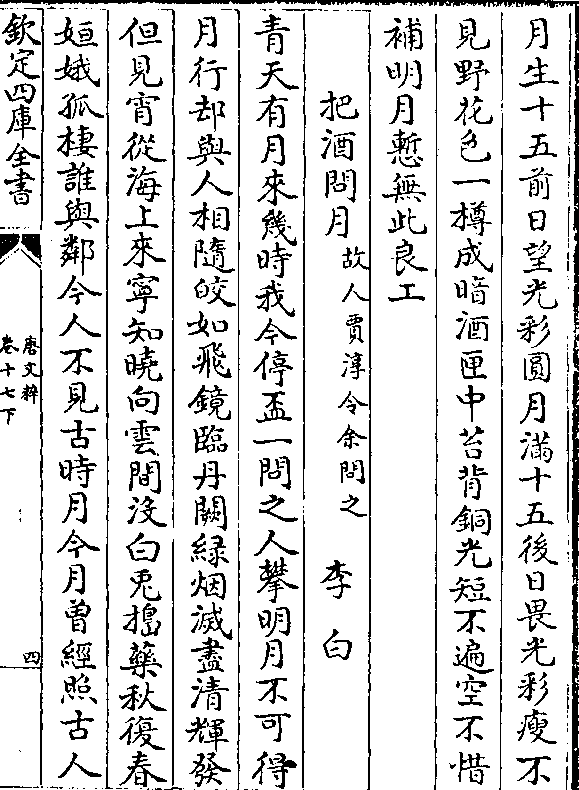 月生十五前日望光彩圓月滿十五後日畏光彩瘦不
見野花色一樽成暗酒匣中苔背銅光短不遍空不惜
補明月慙無此良工
把酒問月故人賈淳令余問之 李白
青天有月來幾時我今停盃一問之人攀明月不可得
月行却與人相隨皎如飛鏡臨丹闕緑烟滅盡清輝發
但見宵從海上來寧知曉向雲間没白兎搗藥秋復春
姮娥孤棲誰與鄰今人不見古時月今月曾經照古人
欽定四庫全書
唐文粹
卷十七下
四